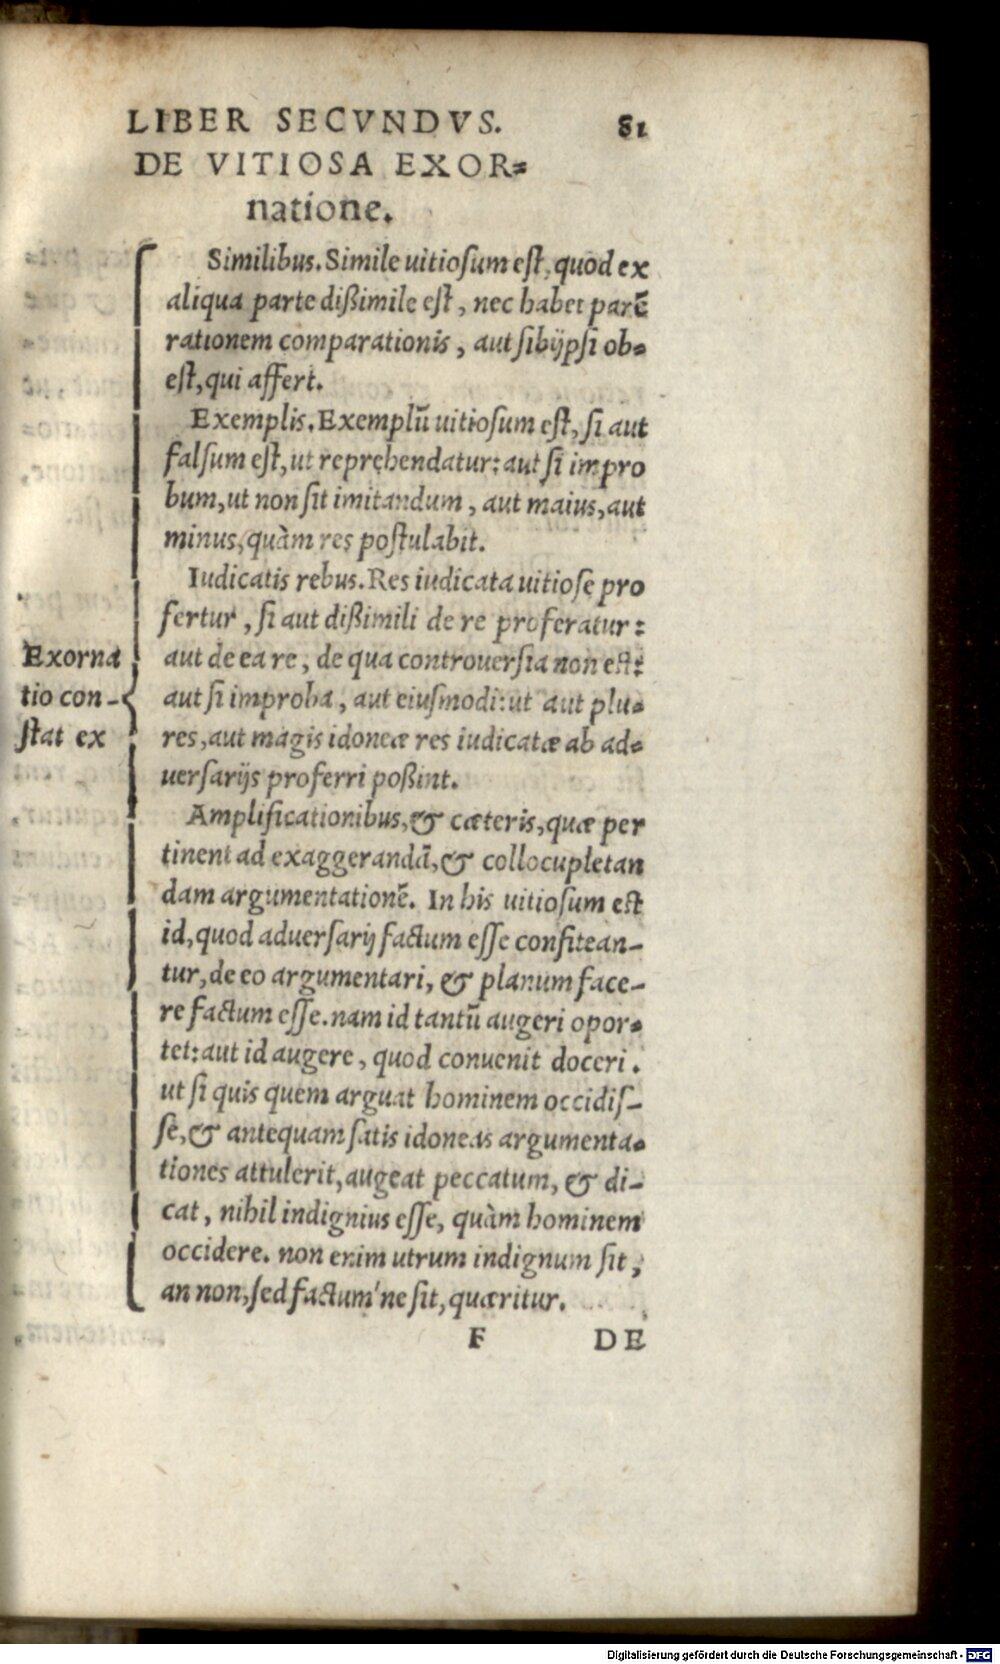 LIBER SECVNDVS. 81
DE VITIOSA EXOR=
natione.
Similibus. Simile uitiosum est, quod ex
aliqua parte dißimile est, nec habet parē
rationem comparationis, aut sibijpsi ob=
est, qui affert.
Exemplis. Exemplū uitiosum est, si aut
falsum est, ut reprehendatur: aut si impro
bum, ut non sit imitandum, aut maius, aut
minus, quàm res postulabit.
Iudicatis rebus. Res iudicata uitiose pro
fertur, si aut dißimili de re proferatur:
aut de ea re, de qua controuersia non est:
aut si improba, aut eiusmodi: ut aut plu=
res, aut magis idoneæ res iudicatæ ab ad=
uersarijs proferri poßint.
Exorna
tio con-
stat ex
Amplificationibus, & cæteris, quæ per
tinent ad exaggerandā, & collocupletan
dam argumentationē. In his uitiosum est
id, quod aduersarij factum esse confitean-
tur, de eo argumentari, & planum face-
re factum esse. nam id tantū augeri opor=
tet: aut id augere, quod conuenit doceri.
ut si quis quem arguat hominem occidis-
se, & antequam satis idoneas argumenta=
tiones attulerit, augeat peccatum, & di-
cat, nihil indignius esse, quàm hominem
occidere. non enim utrum indignum sit,
an non, sed factum'ne sit, quæritur.
F DE
Digitalisierung gefördert durch die Deutsche Forschungsgemeinschaft - DFG